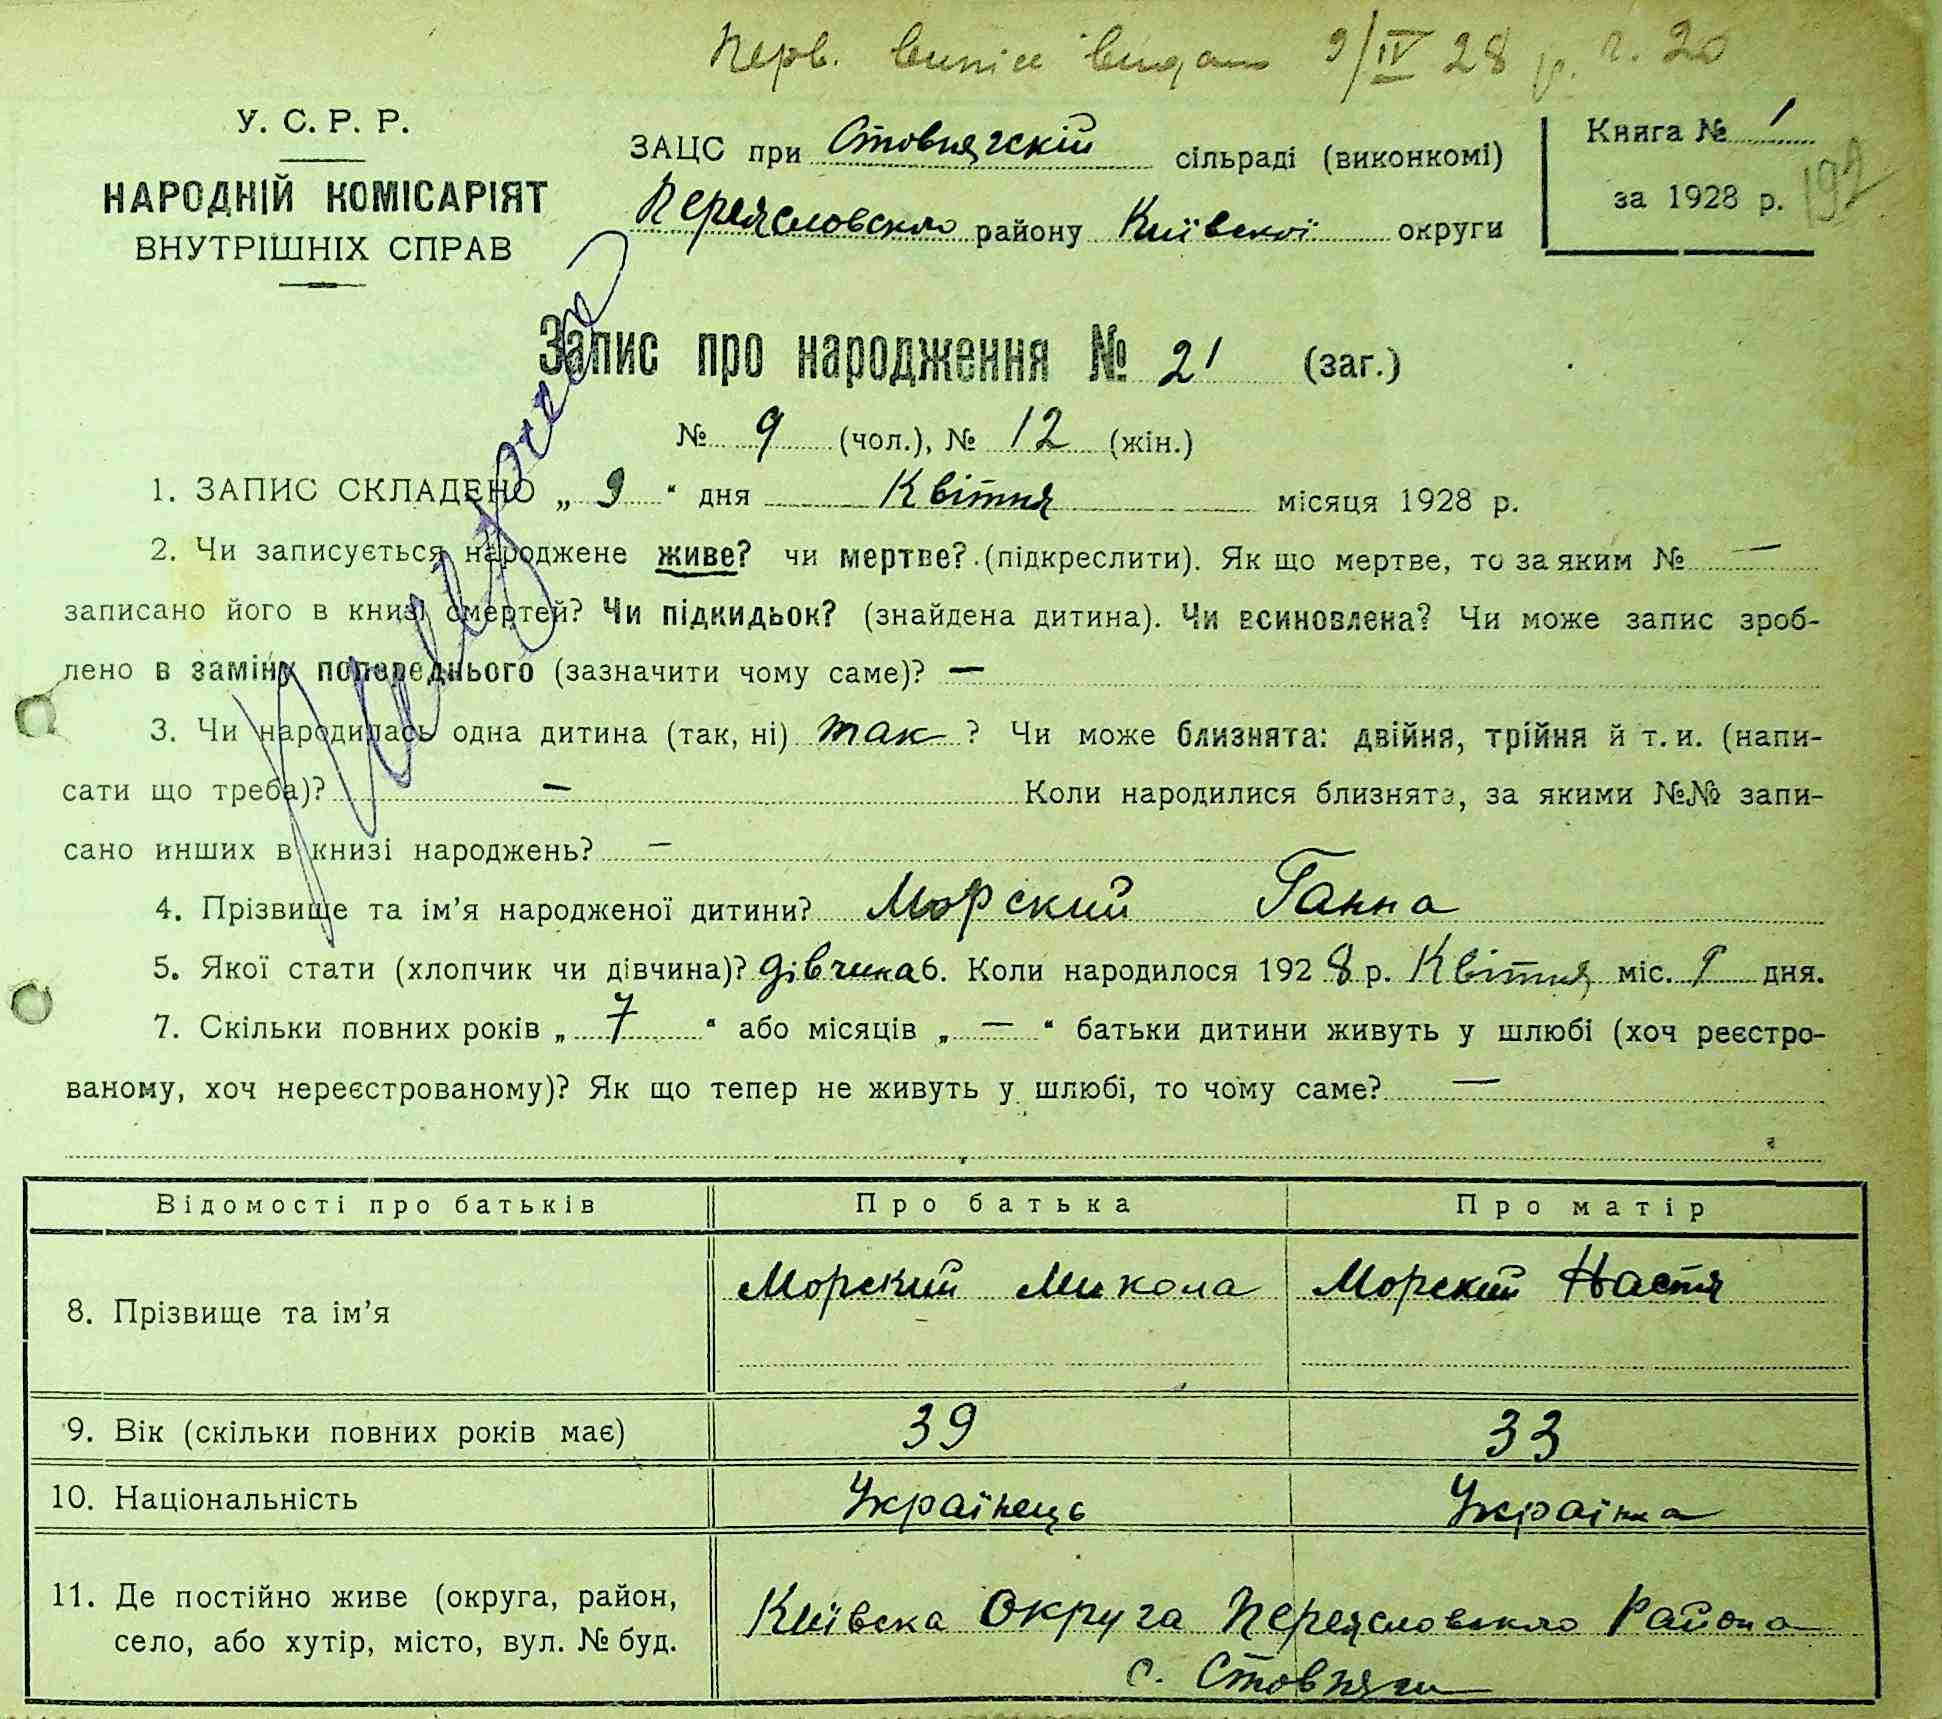 Перв. випис видано 9/IV 28 р. ч. 20
У. С. Р. Р.
НАРОДНІЙ КОМІСАРІЯТ
ВНУТРІШНІХ СПРАВ
ЗАЦС при Стовпягскій сільраді (виконкомі)
Переясловского району Київскої округи
Книга № 1
за 1928 р.
192
Запис про народження № 21 (заг.)
№ 9 (чол.), № 12 (жін.)
1. ЗАПИС СКЛАДЕНО „ 9 “ дня Квітня місяця 1928 р.
2. Чи записується народжене живе? чи мертве? (підкреслити). Як що мертве, то за яким № —
записано його в книзі смертей? Чи підкидьок? (знайдена дитина). Чи всиновлена? Чи може запис зроб-
лено в заміну попереднього (зазначити чому саме)? —
3. Чи народилась одна дитина (так, ні) так ? Чи може близнята: двійня, трійня й т. и. (напи-
сати що треба)? — Коли народилися близнята, за якими №№ запи-
сано инших в книзі народжень? —
4. Прізвище та ім’я народженої дитини? Морский Ганна
5. Якої стати (хлопчик чи дівчина)? дівчина 6. Коли народилося 1928 р. Квітня міс. 9 дня.
7. Скільки повних років „ 7 “ або місяців „ — “ батьки дитини живуть у шлюбі (хоч реєстро-
ваному, хоч нереєстрованому)? Як що тепер не живуть у шлюбі, то чому саме? —
Відомості про батьків Про батька Про матір
8. Прізвище та ім’я Морский Микола Морский Настя
9. Вік (скільки повних років має) 39 33
10. Національність Українець Українка
11. Де постійно живе (округа, район,
село, або хутір, місто, вул. № буд.
Київска Округа Переясловского Района
с. Стовпяги